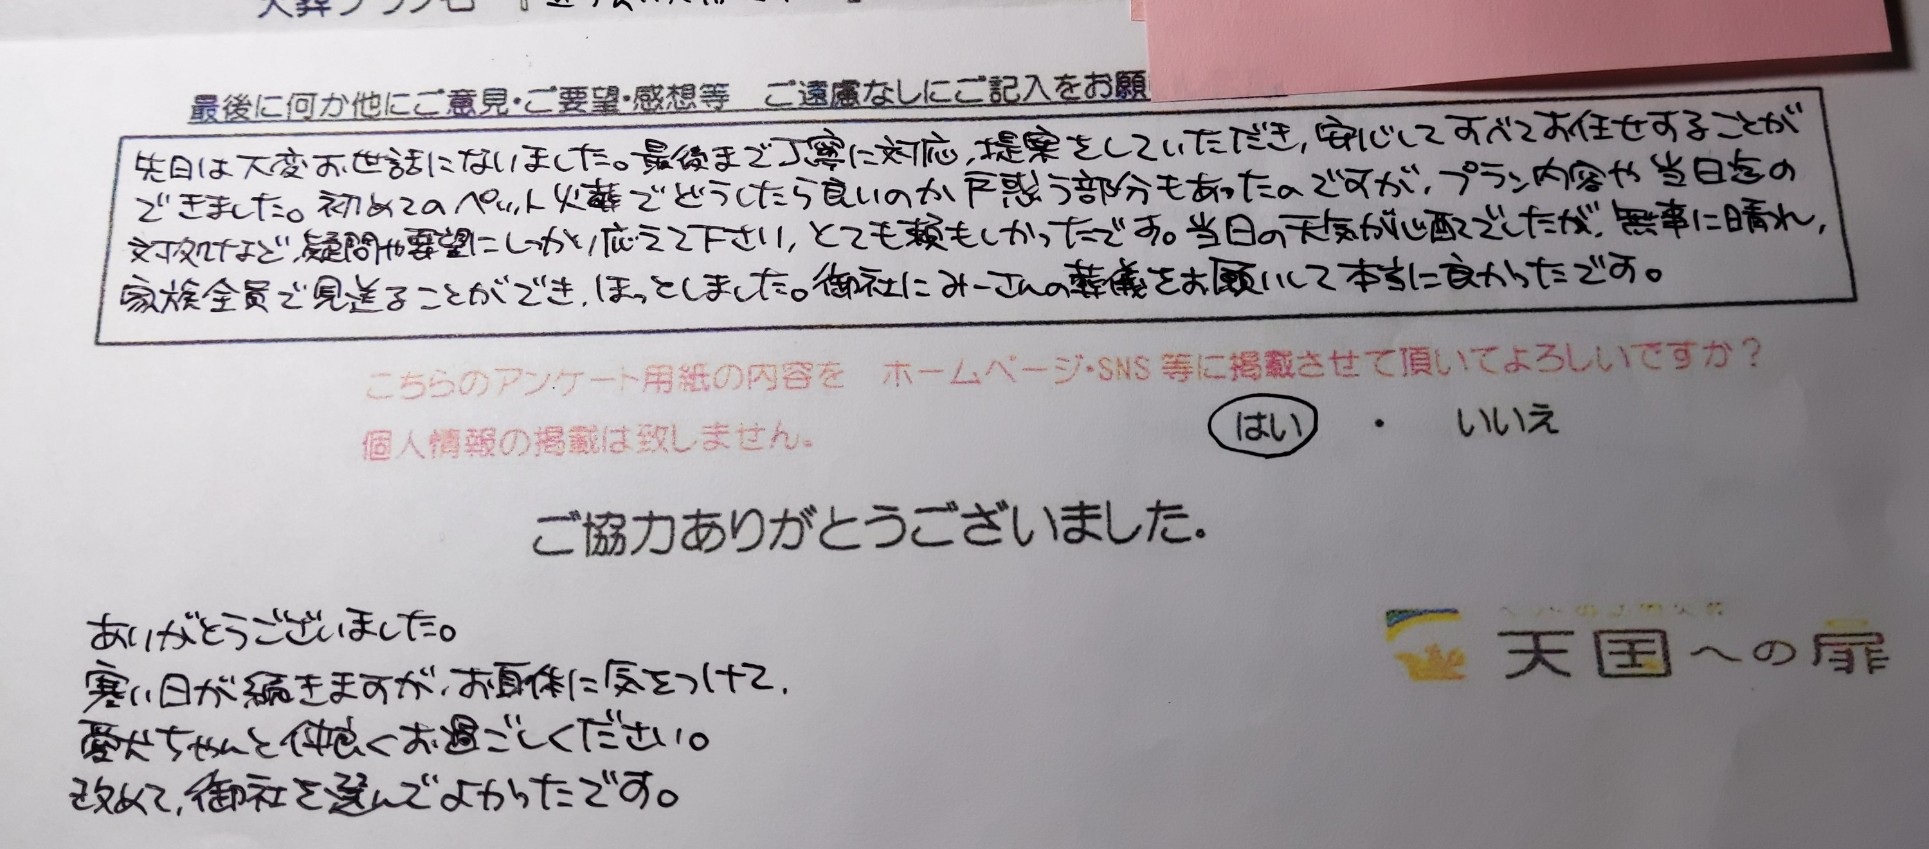 最後に何か他にご意見・ご要望・感想等　ご遠慮なしにご記入をお願
先日は大変お世話になりました。最後まで丁寧に対応、提案をしていただき、安心してすべてお任せすることが
できました。初めてのペット火葬でどうしたら良いのか戸惑う部分もあったのですが、プラン内容や当日迄の
対処など、疑問や要望にしっかり応えて下さり、とても頼もしかったです。当日の天気が心配でしたが、無事に晴れ、
家族全員で見送ることができ、ほっとしました。御社にみーさんの葬儀をお願いして本当に良かったです。
こちらのアンケート用紙の内容を　ホームページ・SNS 等に掲載させて頂いてよろしいですか？
個人情報の掲載は致しません。
はい　・　いいえ
ご協力ありがとうございました。
ありがとうございました。
寒い日が続きますが、お身体に気をつけて、
愛犬ちゃんと仲良くお過ごしください。
改めて、御社を選んでよかったです。
天国への扉